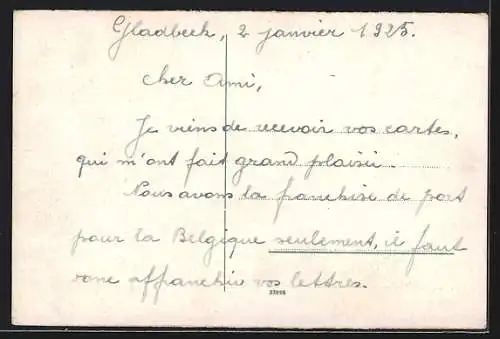 Gladbeck, 2 janvier 1925.
cher Ami,
Je viens de recevoir vos cartes,
qui m'ont fait grand plaisir.
Nous avons la franchise de port
pour la Belgique seulement, il faut
donc affranchir vos lettres.